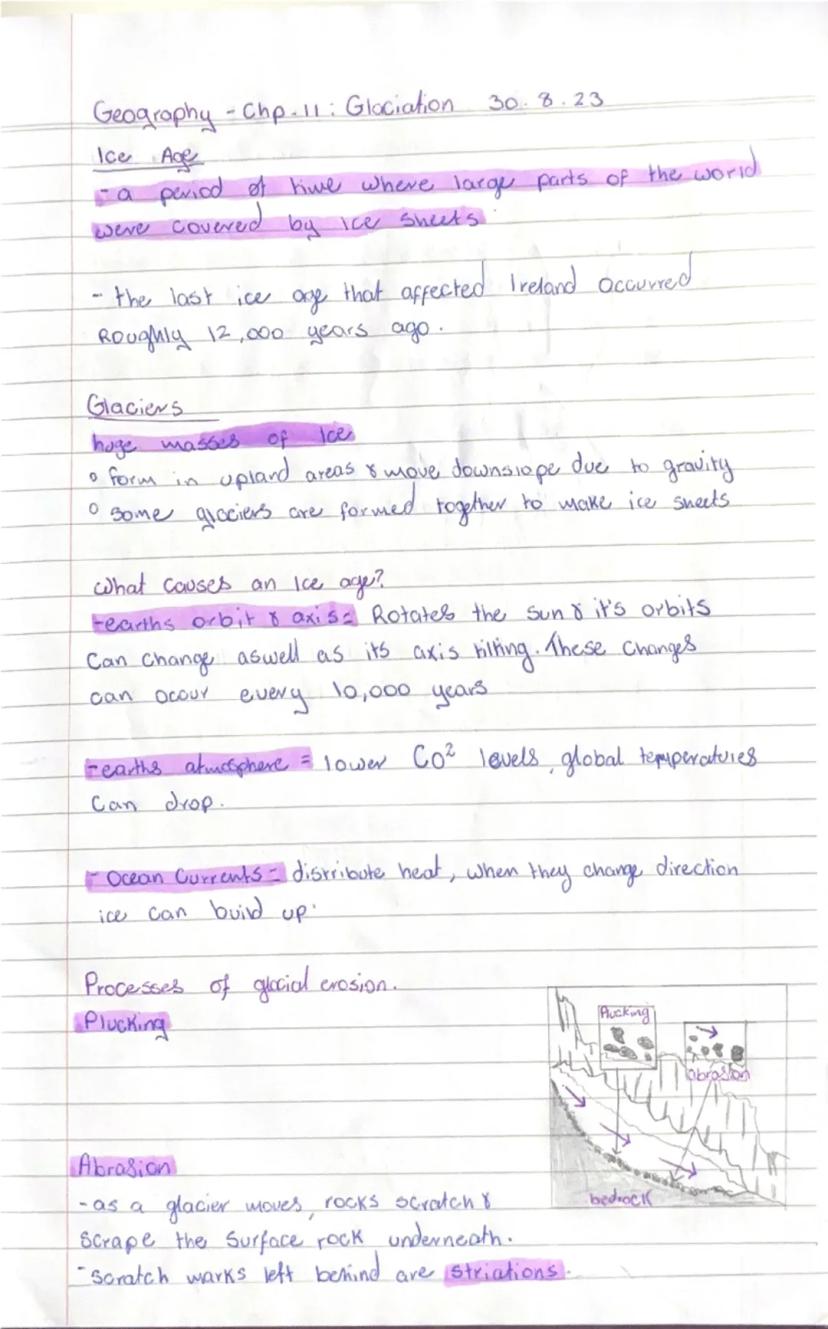 Geography - Chp. 11: Glaciation 30.8.23
Ice Age
- a period of time where large parts of the world
were covered by ice sheets
- the last ice age that affected Ireland occurred
Roughly 12,000 years ago.
Glaciers
huge masses of Ice
° form in upland areas & move downslope due to gravity
° some glaciers are formed together to make ice sheets
What causes an Ice age?
- earths orbit & axis = Rotates the sun & it's orbits
Can change aswell as its axis tilting. These changes
can occur every 10,000 years
- earths atmosphere = lower Co² levels, global temperatures
Can drop.
- Ocean Currents = distribute heat, when they change direction
ice can build up.
Processes of glacial erosion.
Plucking
Plucking
abrasion
bedrock
Abrasion
- as a glacier moves, rocks scratch &
Scrape the Surface rock underneath.
- Scratch marks left behind are striations.